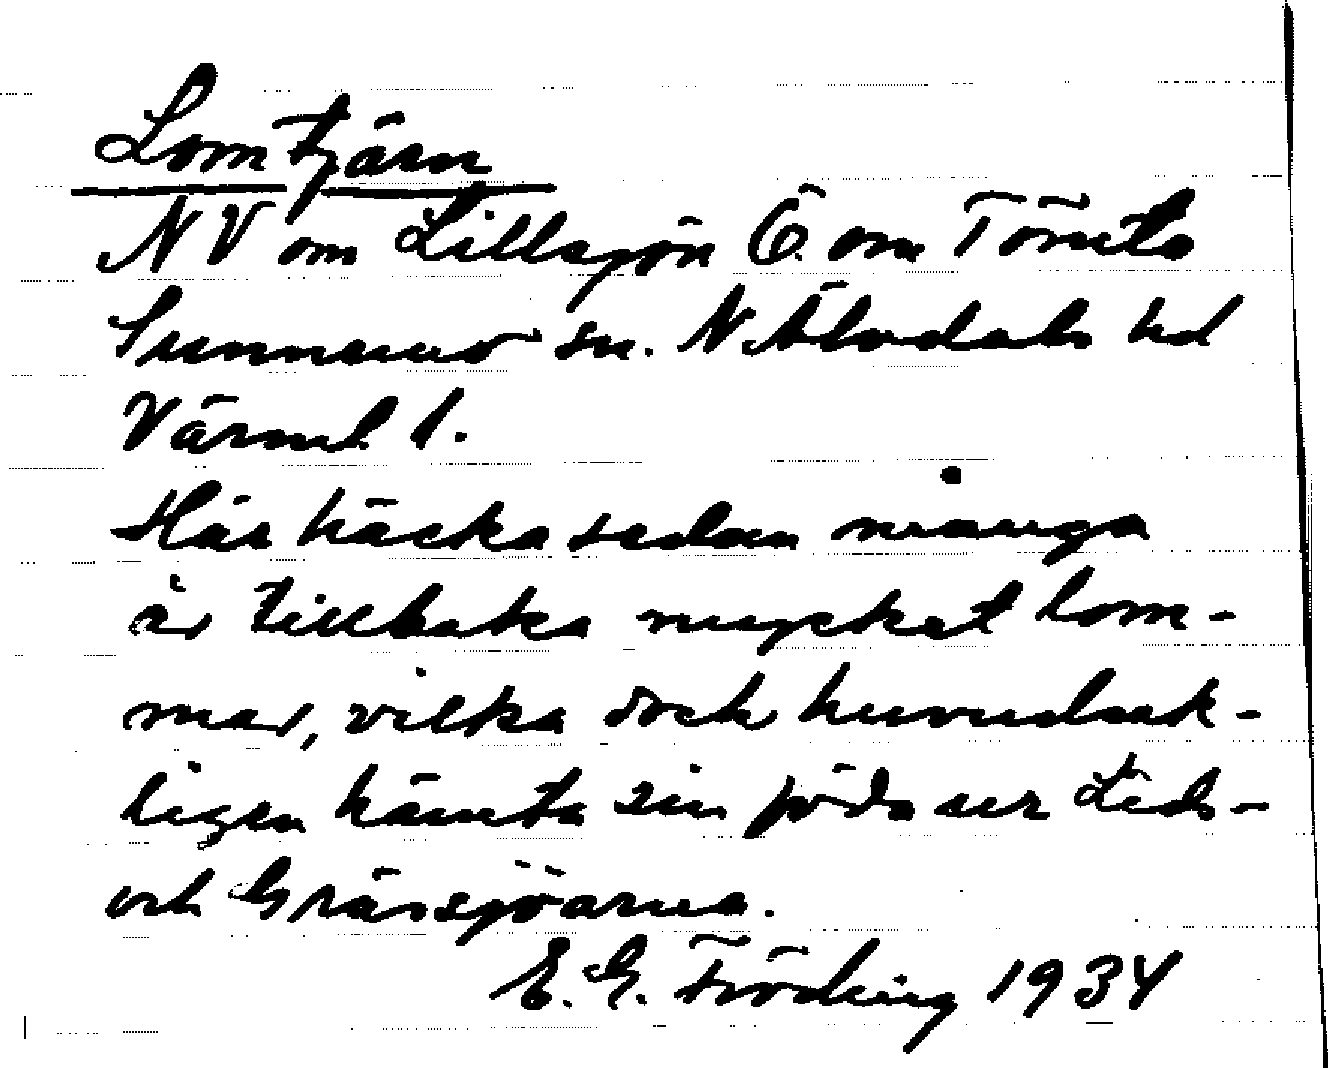 Lomtjärn
NV om Lillsjön Ö. om Tömta
Sunnemo sn. N. Älvdals hd
Värml. l.
Här häcka sedan många
år tillbaka mycket lom-
mar, vilka dock huvudsak-
ligen hämta sin föda ur Lids-
och Gräsjöarna.
E. G. Fröding 1934